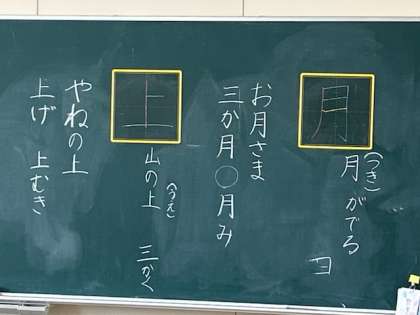 月
(つき)
月がでる
お月さま
三か月〇月み
上
(うえ)
山の上 三かく
やねの上
上げ 上むき